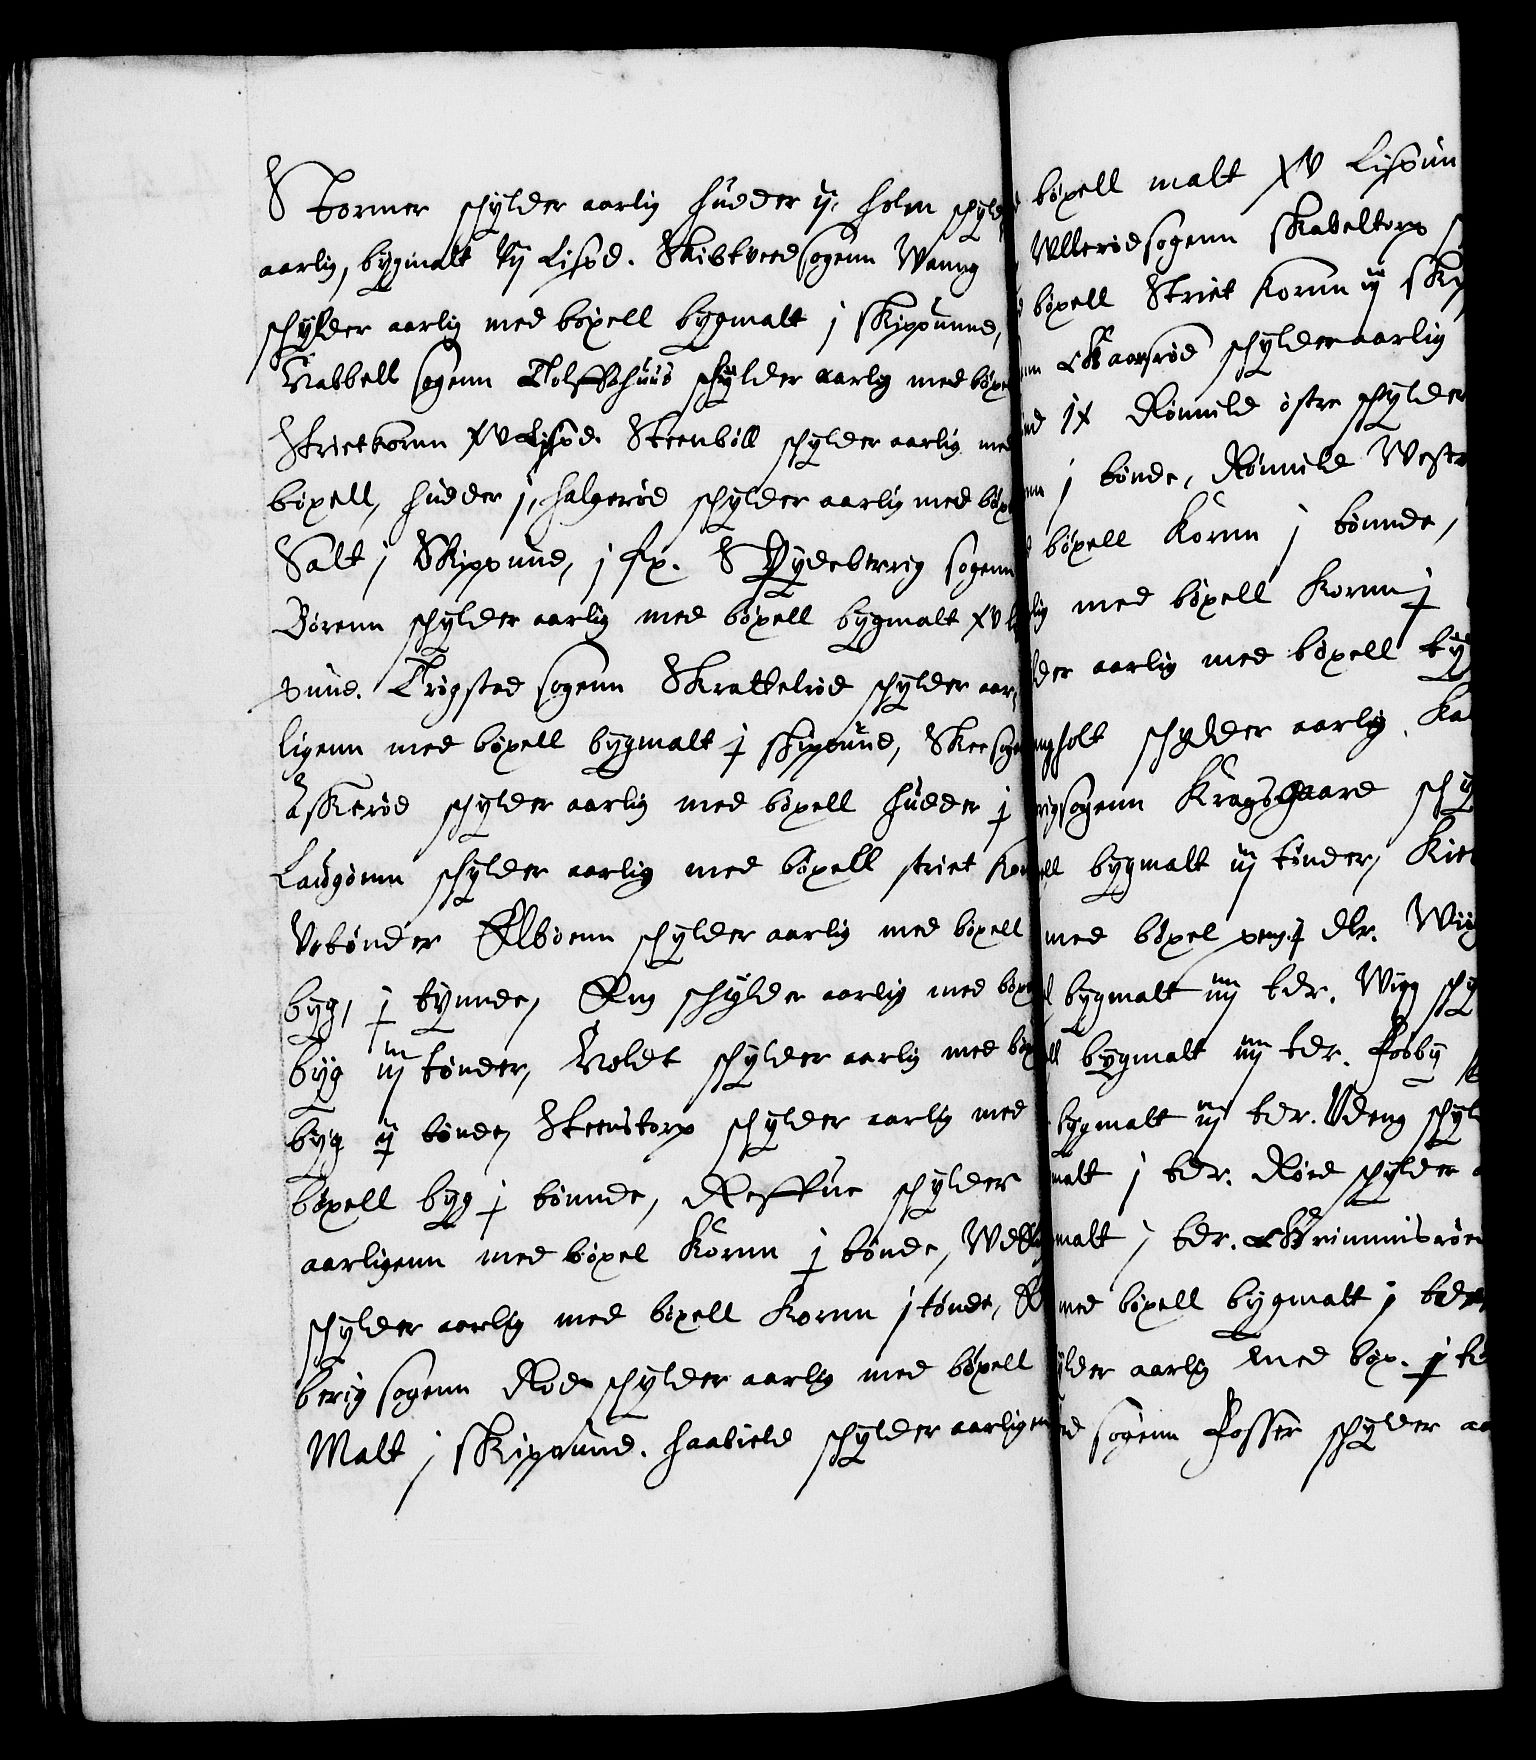 Stormer schylder aarlig huder ij, Holm schyld
aarlig, bygmalt vij Lispd. Skibtved sogenn Wanng
schylder aarlig med bøxell bygmalt j skippunnd,
Rabbell sogenn Tolffshuus schylder aarlig med bøxe
Strietkornn XV Lispd. Steenbøll schylder aarlig med
bøxell, huder j, Halgerød schylder aarlig med bøxe
Salt j Skippund, j fx. Spydeberrig sogenn
Børenn schylder aarlig med bøxell bygmalt XV li
pund. Trøgstad sogenn Skrattelrød schylder aar¬
ligenn med bøxell bygmalt j skippund, Skee soge
Askerød schylder aarlig med bøxell huder j
Laugønn schylder aarlig med bøxell striet kor
Vtønder Elbøenn schylder aarlig med bøxell
byg, j tynnde, Em schylder aarlig med bøxe
byg iij tønder, Woldt schylder aarlig med bøx
byg ij tønde, Steenstorp schylder aarlig med
bøxell byg j tønnde, Reffue schylder
aarligenn med bøxel kornn j tønde, Wettig
schylder aarlig med bøxell kornn j tønde,
berig sogenn Rød schylder aarlig med bøxell
Malt j skippund. Haabield schylder aarligen
bøxell malt XV Lispun
Ullerød sogenn Skabeltorp s
bøxell Striet kornn ij Skip
nn Skaarsrød schylder aarlig
nd ix Rømild østre schylder
nn j tønde, Rømild Westr
bøxell kornn j tønnde,
lig med bøxell kornn j
lder aarlig med bøxell byg
ngholt schylder aarlig, ka
rigsogenn Kragsgaard schy
ll bygmalt iij tønder, Kie
med bøxel peng j dlr. Wiig
l bygmalt iiij tdr. Wigg schy
ll bygmalt iiij tdr. Fosby s
bygmalt iij tdr. Udeng schyl
malt j tdr. Røed schylder a
malt j tdr. Grimmisrøed
med bøxell bygmalt j tdr
ylder aarlig med bøx. j td
rd sogenn Fosser schylder aa